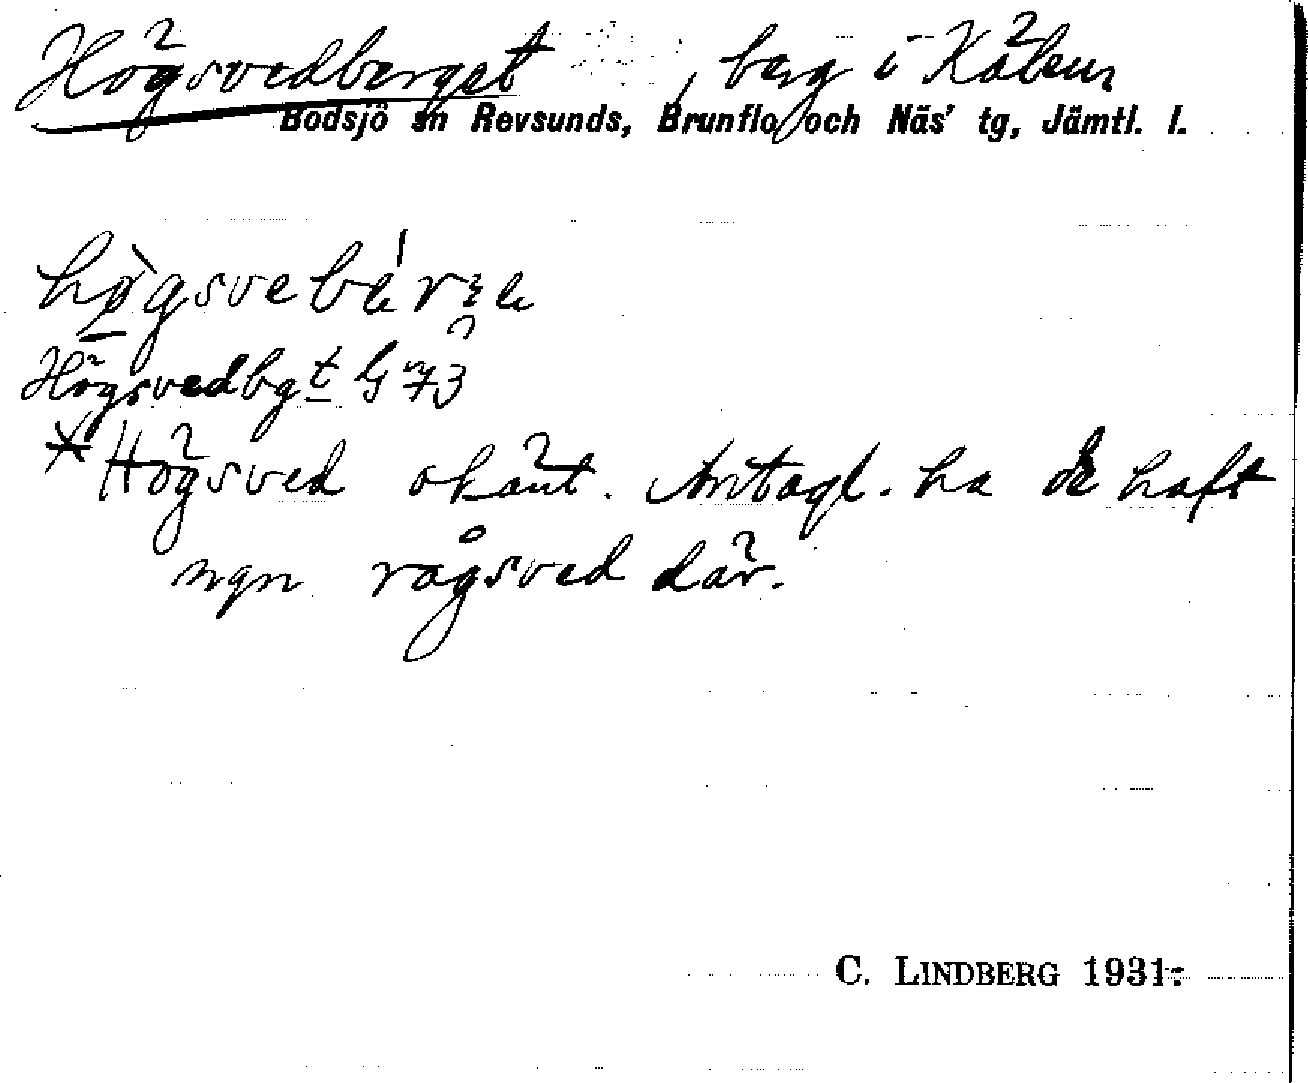 Högsvedberget, berg i Kälen
Bodsjö sn Revsunds, Brunflo och Näs' tg, Jämtl. l.
Högsvedbgt G 73
*Högsved okänt. Antagl. ha de haft
ngn rågsved där.
C. LINDBERG 1931.